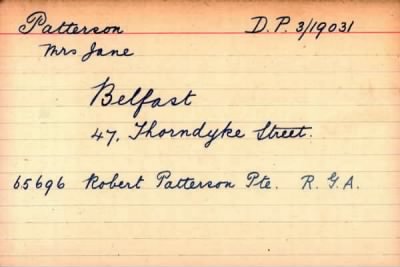 Patterson D.P. 3/19031
Mrs Jane
Belfast
47, Thorndyke Street.
65696 Robert Patterson Pte. R.G.A.